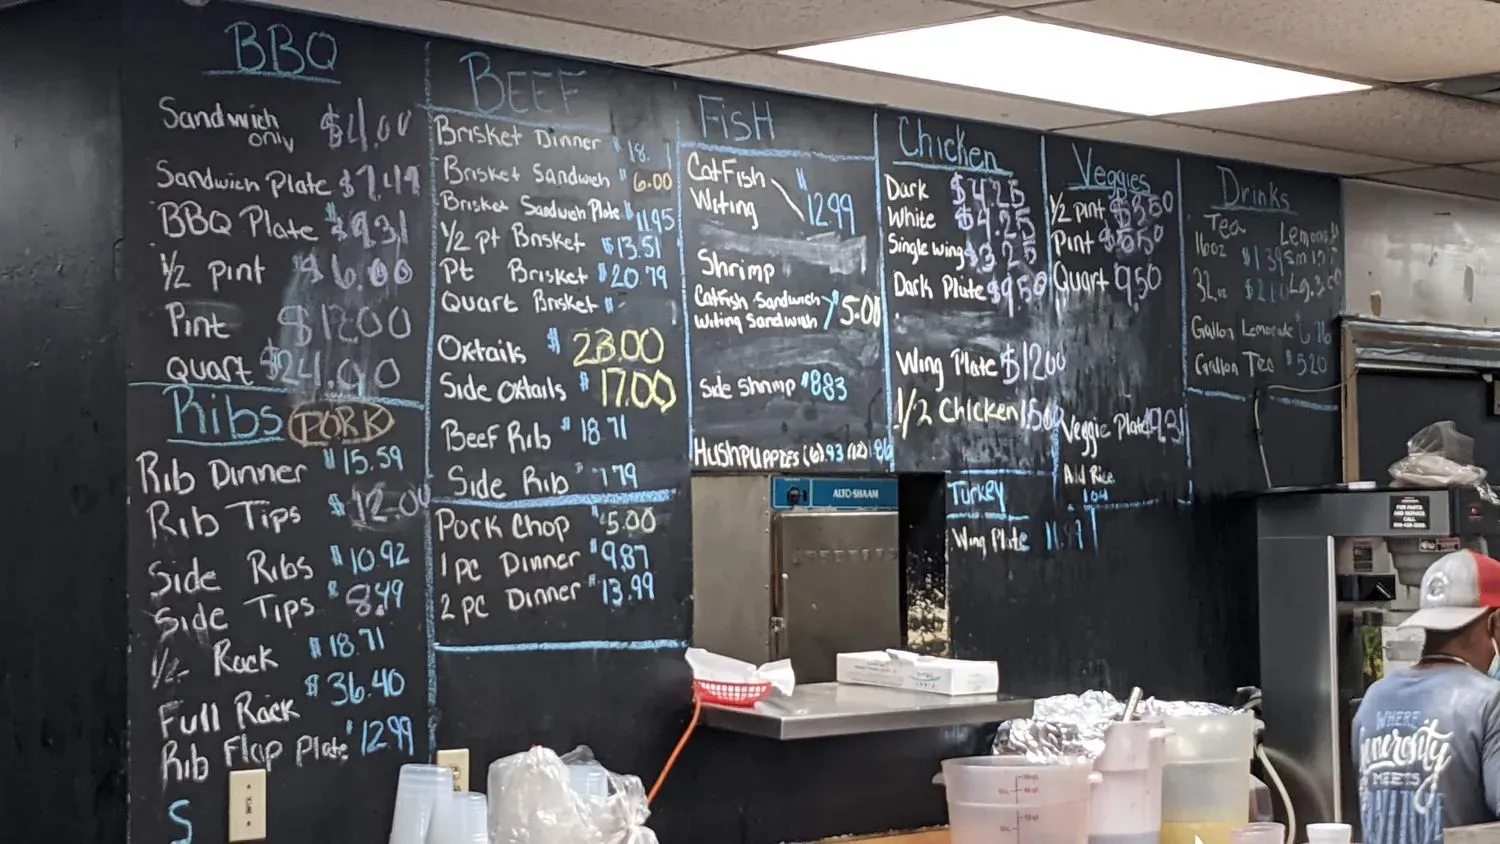 BBQ
Sandwich only $4.00
Sandwich Plate $7.49
BBQ Plate $9.31
1/2 pint $6.00
Pint $12.00
quart $24.00
Ribs PORK
Rib Dinner $15.59
Rib Tips $12.00
Side Ribs $10.92
Side Tips $8.49
1/2 Rack $18.71
Full Rack $36.40
Rib Flap Plate $12.99
S
BEEF
Brisket Dinner $18.
Brisket Sandwich $6.00
Brisket Sandwich Plate $11.95
1/2 pt Brisket $13.51
Pt Brisket $20.79
Quart Brisket $
Oxtails $23.00
Side Oxtails $17.00
Beef Rib $18.71
Side Rib 7.79
Pork Chop $5.00
1 pc Dinner $9.87
2 pc Dinner $13.99
Fish
Catfish
Witing $12.99
Shrimp
Catfish Sandwich
Witing Sandwich $5.00
Side Shrimp $8.83
Hushpuppies (6) .93 (12) 1.86
Chicken
Dark $4.25
White $4.25
Single wing $3.25
Dark Plate $9.50
Wing Plate $12.00
1/2 Chicken 15.00
Turkey
Wing Plate
Veggies
1/2 pint $3.50
Pint
Quart 9.50
Veggie Plate 9.31
Add Rice
1.04
Drinks
Tea
16oz $1.39
Gallon Lemonade
Gallon Tea $5.20
ALTO-SHAAM
FOR PARTS
AND SERVICE
CALL
WHERE
Generosity
MEETS